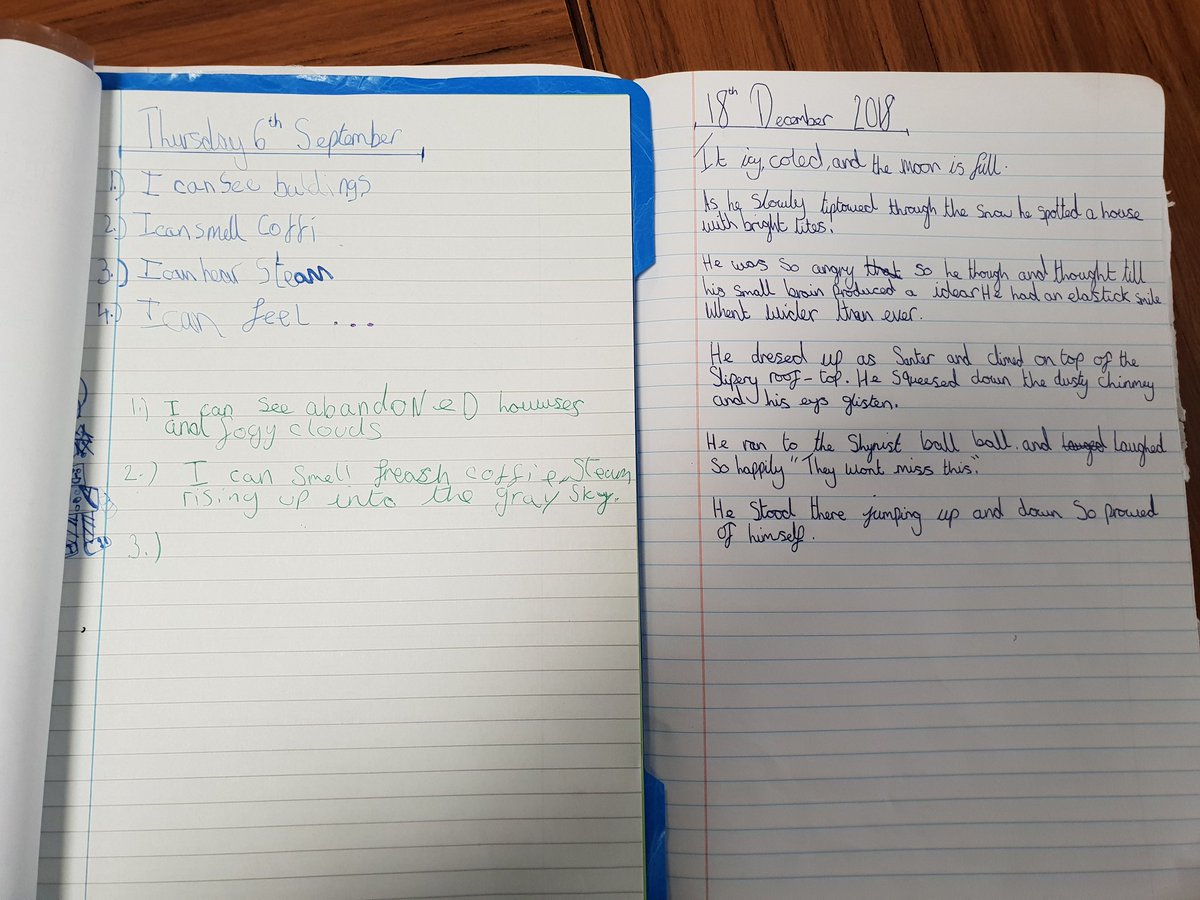 Thursday 6th September
1.) I can see buldings
2.) I can smell Coffi
3.) I can hear Steam
4.) I can feel ....
1.) I can see abandoNeD houwses
and fogy clouds
2.) I can smell freash coffie, Steam
rising up into the gray sky.
3.)
18th December 2018
It icy, coled, and the moon is full.
As he Slowly tiptowed through the snow he spotted a house
with bright lites.
He was so angry that so he though and thought till
his small brain produced a idear He had an elastick smile
Whent wider than ever.
He dresed up as Santer and climed on top of the
Slipery roof-top. He Squeesed down the dusty chinmey
and his eys glisten.
He ran to the Shynist ball ball. and lauged Laughed
So happily "They wont miss this."
He Stood there jumping up and down So prowed
of himself.